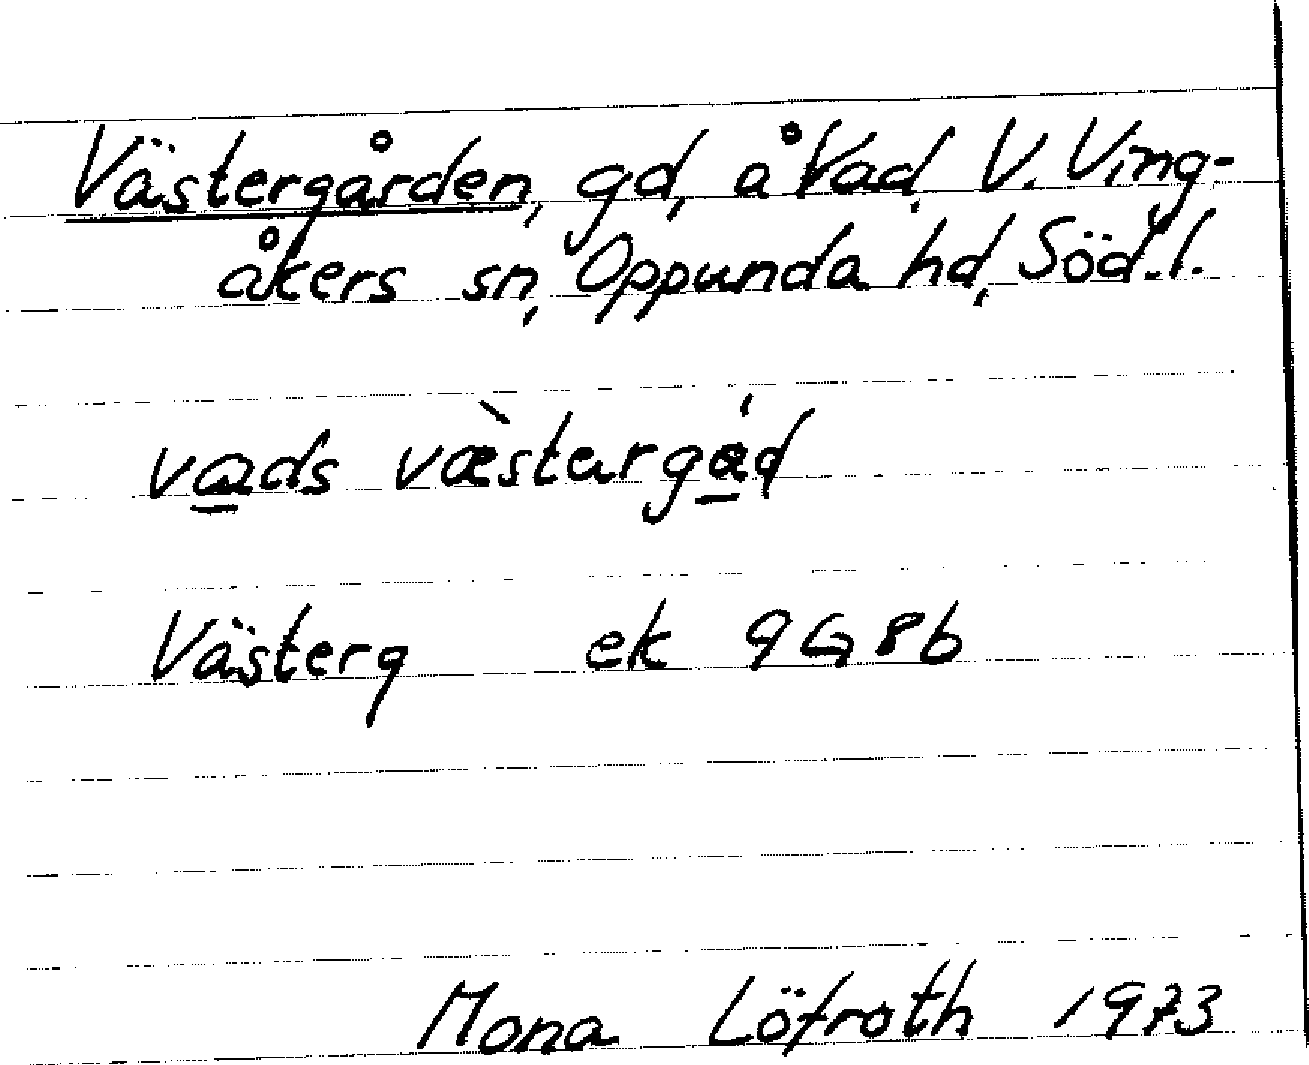 Västergården, gd, å Vad, V. Ving-
åkers sn, Oppunda hd, Söd.l.
vads væ̀stargád
Västerg ek 9G8b
Mona Löfroth 1973